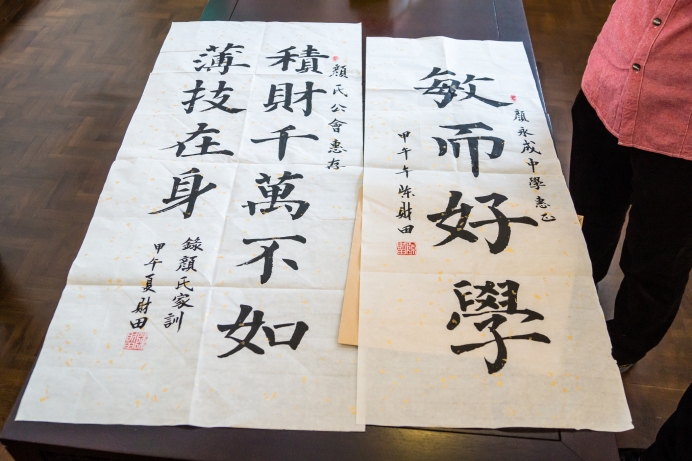 顏永成中學惠正
敏而好學
甲午年陈財田
顏氏公會惠存
積財千萬不如
薄技在身
錄顏氏家訓
甲午夏財田